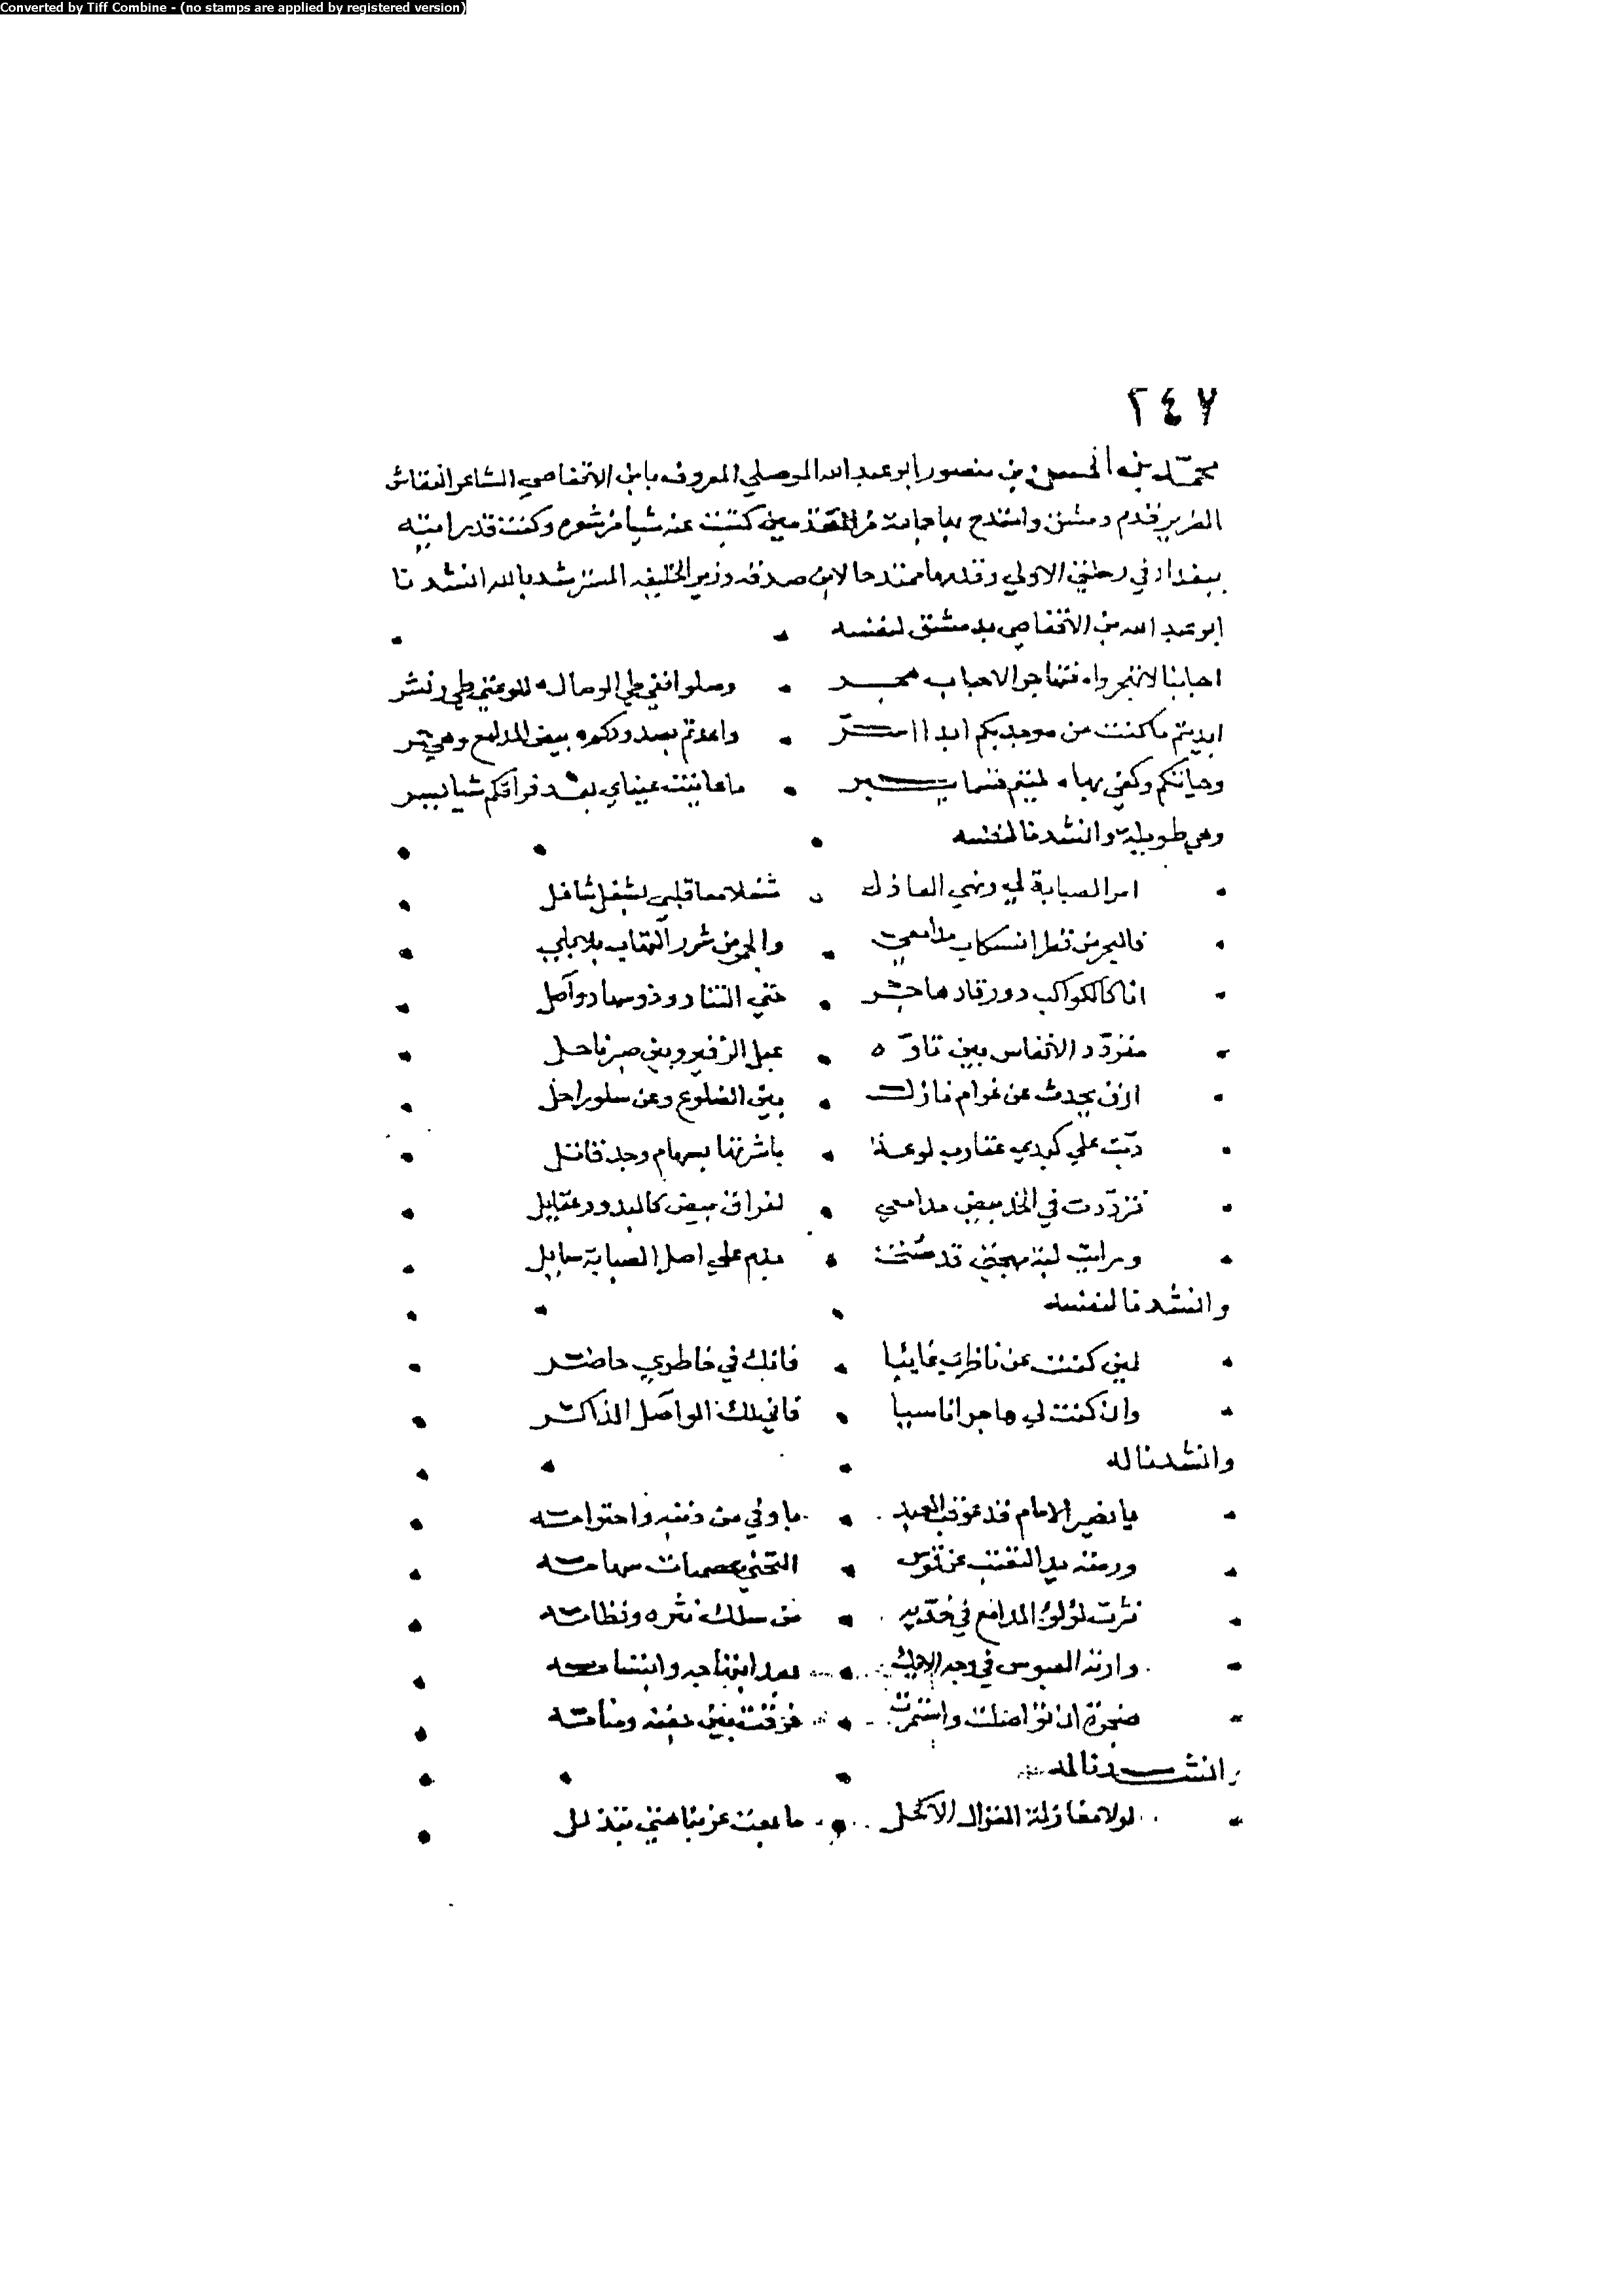 Converted by Tiff Combine - (no stamps are applied by registered version)
٢٤٧
محمّد بن الحسين بن منصور ابو عبد الله الموصلي المعروف بابن الاقفاصي الشاعر النقاش
الضرير قدم دمشق وامتدح بها جماعة من المقدمين كتبت عنه شيا من شعره وكنت قد رايته
ببغداد في رحلتي الاولي وقدمها ممتدحا لابن صدقه وزير الخليفه المسترشد بالله انشدنا
ابو عبد الله بن الاقفاصي بدمشق لنفسه
احبابنا لا تهجروا فتهاجر الاحباب هجر وصلوا ففي طي الوصال للوعتي طي ونشر
ابديتم ما كنت من وجدي بكم ابدا اسرّ واعدتم بصدودكم بيض المدامع وهي حمر
وحياتكم وكفي بها لمتيم قسما يبر ما عاينت عيناي بعد فراقكم شيا يسر
وهي طويلة وانشدنا لنفسه
امر الصبابة لي ونهي العاذل شغلا معا قلبي بشغل شاغل
فالبحر من قطر انسكاب مدامعي والجمر من شرر التهاب بلابلي
انا كالكواكب ذو رقاد هاجر حتي التناد وذو سهاد واصل
متردّد الانفاس بين تاوّه عبل الزفير وبين صبر ناحل
ارق يحدث عن غرام نازل بين الضلوع وعن سلو راحل
دبّت علي كبدي عقارب لوعة باشرتها بسهام وجد قاتل
تردّدت في الخد بيض مدامعي لفراق بيض كالبدور عقايل
ورايت لبة مهجتي قد
بدم علي اهل الصبابة سايل
وانشدنا لنفسه
لين كنت عن ناظري غايبا فانك في خاطري حاضر
وان كنت لي هاجرا ناسيا فاني لك الواصل الذاكر
وانشدنا له
يا نصير الامام قد عوقب العبد باوفي من ذنبه واجترامه
ورمته يد التعتب عن قوس التجني سهامه
نثرت لؤلؤ المدامع في خدّيه من سلك نثره ونظامه
وارته العبوس في وجه بعد ابتهاجه وابتسامه
ضجرة ان تواصلت واستمرت فرقت بين جفنه ومنامه
وانشدنا له
لولا مغازلة الغزال الاكحل ما بعت عز تباهتي بتذلل